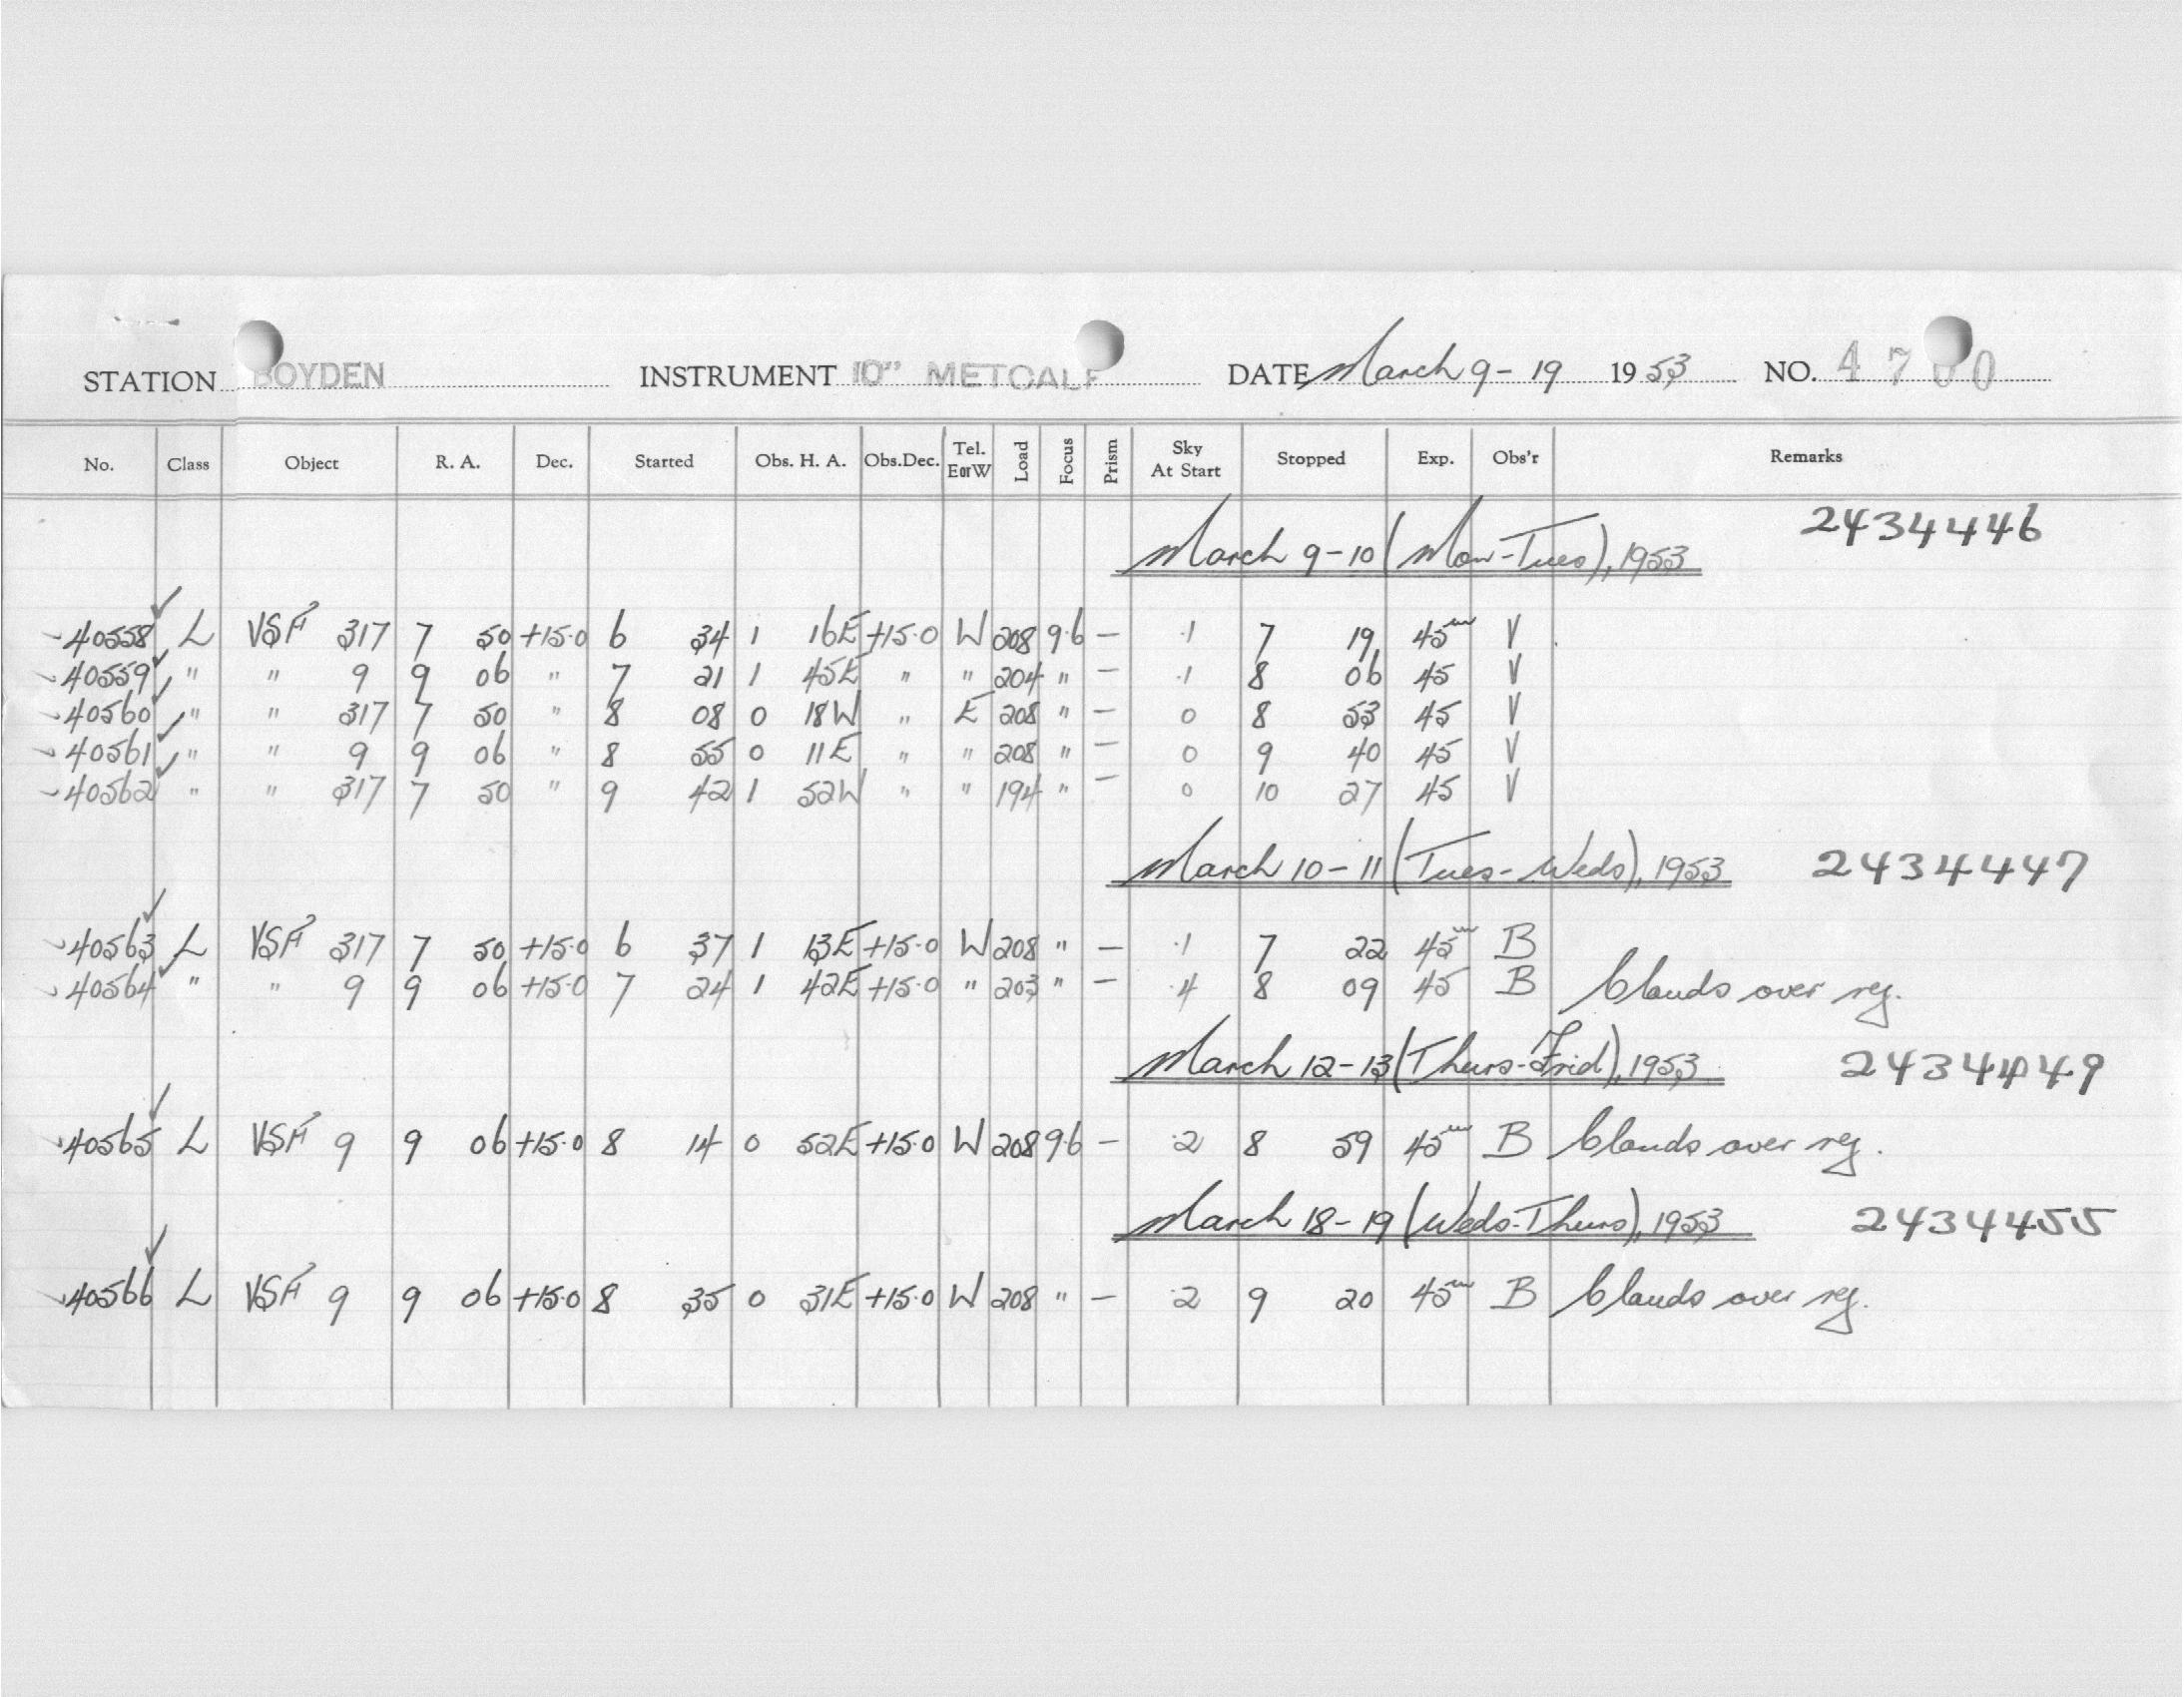 STATION BOYDEN INSTRUMENT 10" METCALF DATE March 9-19 1953 NO. 4700
No. Class Object R. A. Dec. Started Obs. H. A. Obs.Dec. Tel. E or W Load Focus Prism Sky At Start Stopped Exp. Obs'r Remarks
March 9-10 (Mon-Tues), 1953 2434446
40558 L VSF 317 7 50 +15.0 6 34 1 16E +15.0 W 208 9.6 — .1 7 19 45m V
40559 " " 9 9 06 " 7 21 1 45E " " 204 " — .1 8 06 45 V
40560 " " 317 7 50 " 8 08 0 18W " E 208 " — 0 8 53 45 V
40561 " " 9 9 06 " 8 55 0 11E " " 208 " — 0 9 40 45 V
40562 " " 317 7 50 " 9 42 1 52W " " 194 " — 0 10 27 45 V
March 10-11 (Tues-Weds), 1953 2434447
40563 L VSF 317 7 50 +15.0 6 37 1 13E +15.0 W 208 " — .1 7 22 45m B
40564 " " 9 9 06 +15.0 7 24 1 42E +15.0 " 203 " — .4 8 09 45 B Clouds over reg.
March 12-13 (Thurs-Frid), 1953 2434449
40565 L VSF 9 9 06 +15.0 8 14 0 52E +15.0 W 208 9.6 — .2 8 59 45m B Clouds over reg.
March 18-19 (Weds-Thurs), 1953 2434455
40566 L VSF 9 9 06 +15.0 8 35 0 31E +15.0 W 208 " — .2 9 20 45m B Clouds over reg.